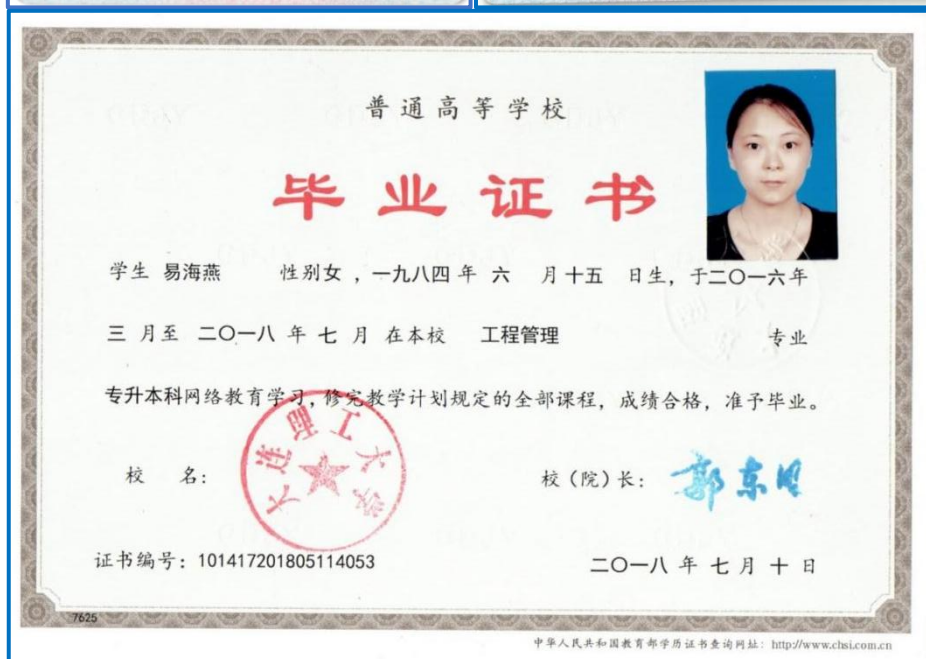 普通高等学校
毕业证书
学生 易海燕 性别女，一九八四 年 六 月十五 日生，于二〇一六年
三 月至 二〇一八 年 七 月 在本校 工程管理 专业
专升本科网络教育学习，修完教学计划规定的全部课程，成绩合格，准予毕业。
校 名：
大连理工大学
校（院）长：
郭东明
证书编号：101417201805114053
二〇一八 年 七 月 十 日
7625
中华人民共和国教育部学历证书查询网址：http://www.chsi.com.cn